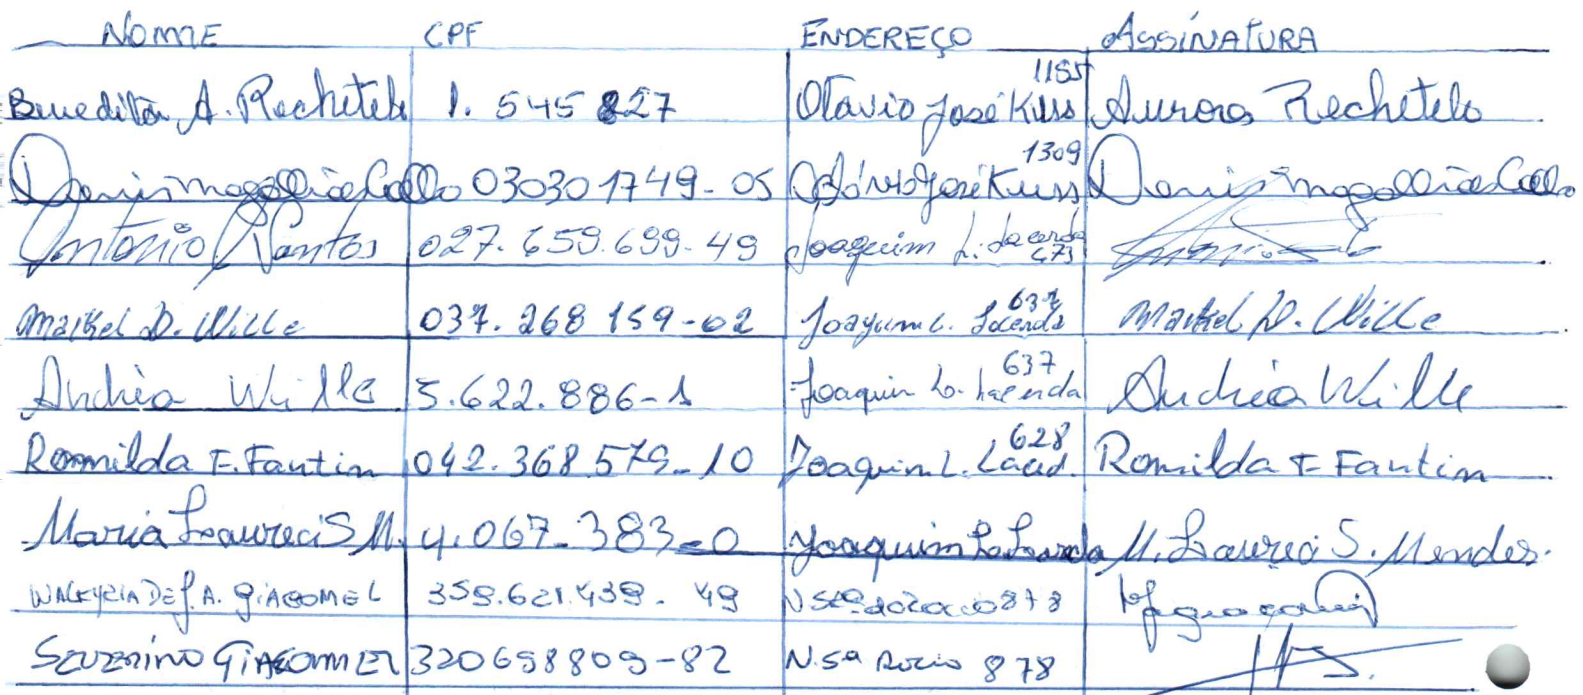 NOME CPF ENDEREÇO ASSINATURA
1185
Benedita A. Rechetelo 1. 545 827 Otavio José Kuss Aurora Rechetelo
1309
Denis Magalhães Collo 030301749-05 José Kuss Denis Magalhães Collo
Antonio Santos 027.659.699-49 Joaquim L. Lacerda
673
637
Maikel D. Wille 037.268 159-02 Joaquim L. Lacerda Maikel D. Wille
637
Andréa Wille 5.622.886-1 Joaquin L. Lacerda Andréa Wille
628
Romilda F. Fantin 042.368.579-10 Joaquim L. Lacerd. Romilda F Fantin
Maria Laureci S M. 4.067-383-0 Joaquim L. M. Laureci S. Mendes.
WALKYRIA DE J. A. GIACOMEL 359.621.439-49 N Sra do Rocio 878
SEVERINO GIACOMEL 320698809-82 N.Sª Rocio 878